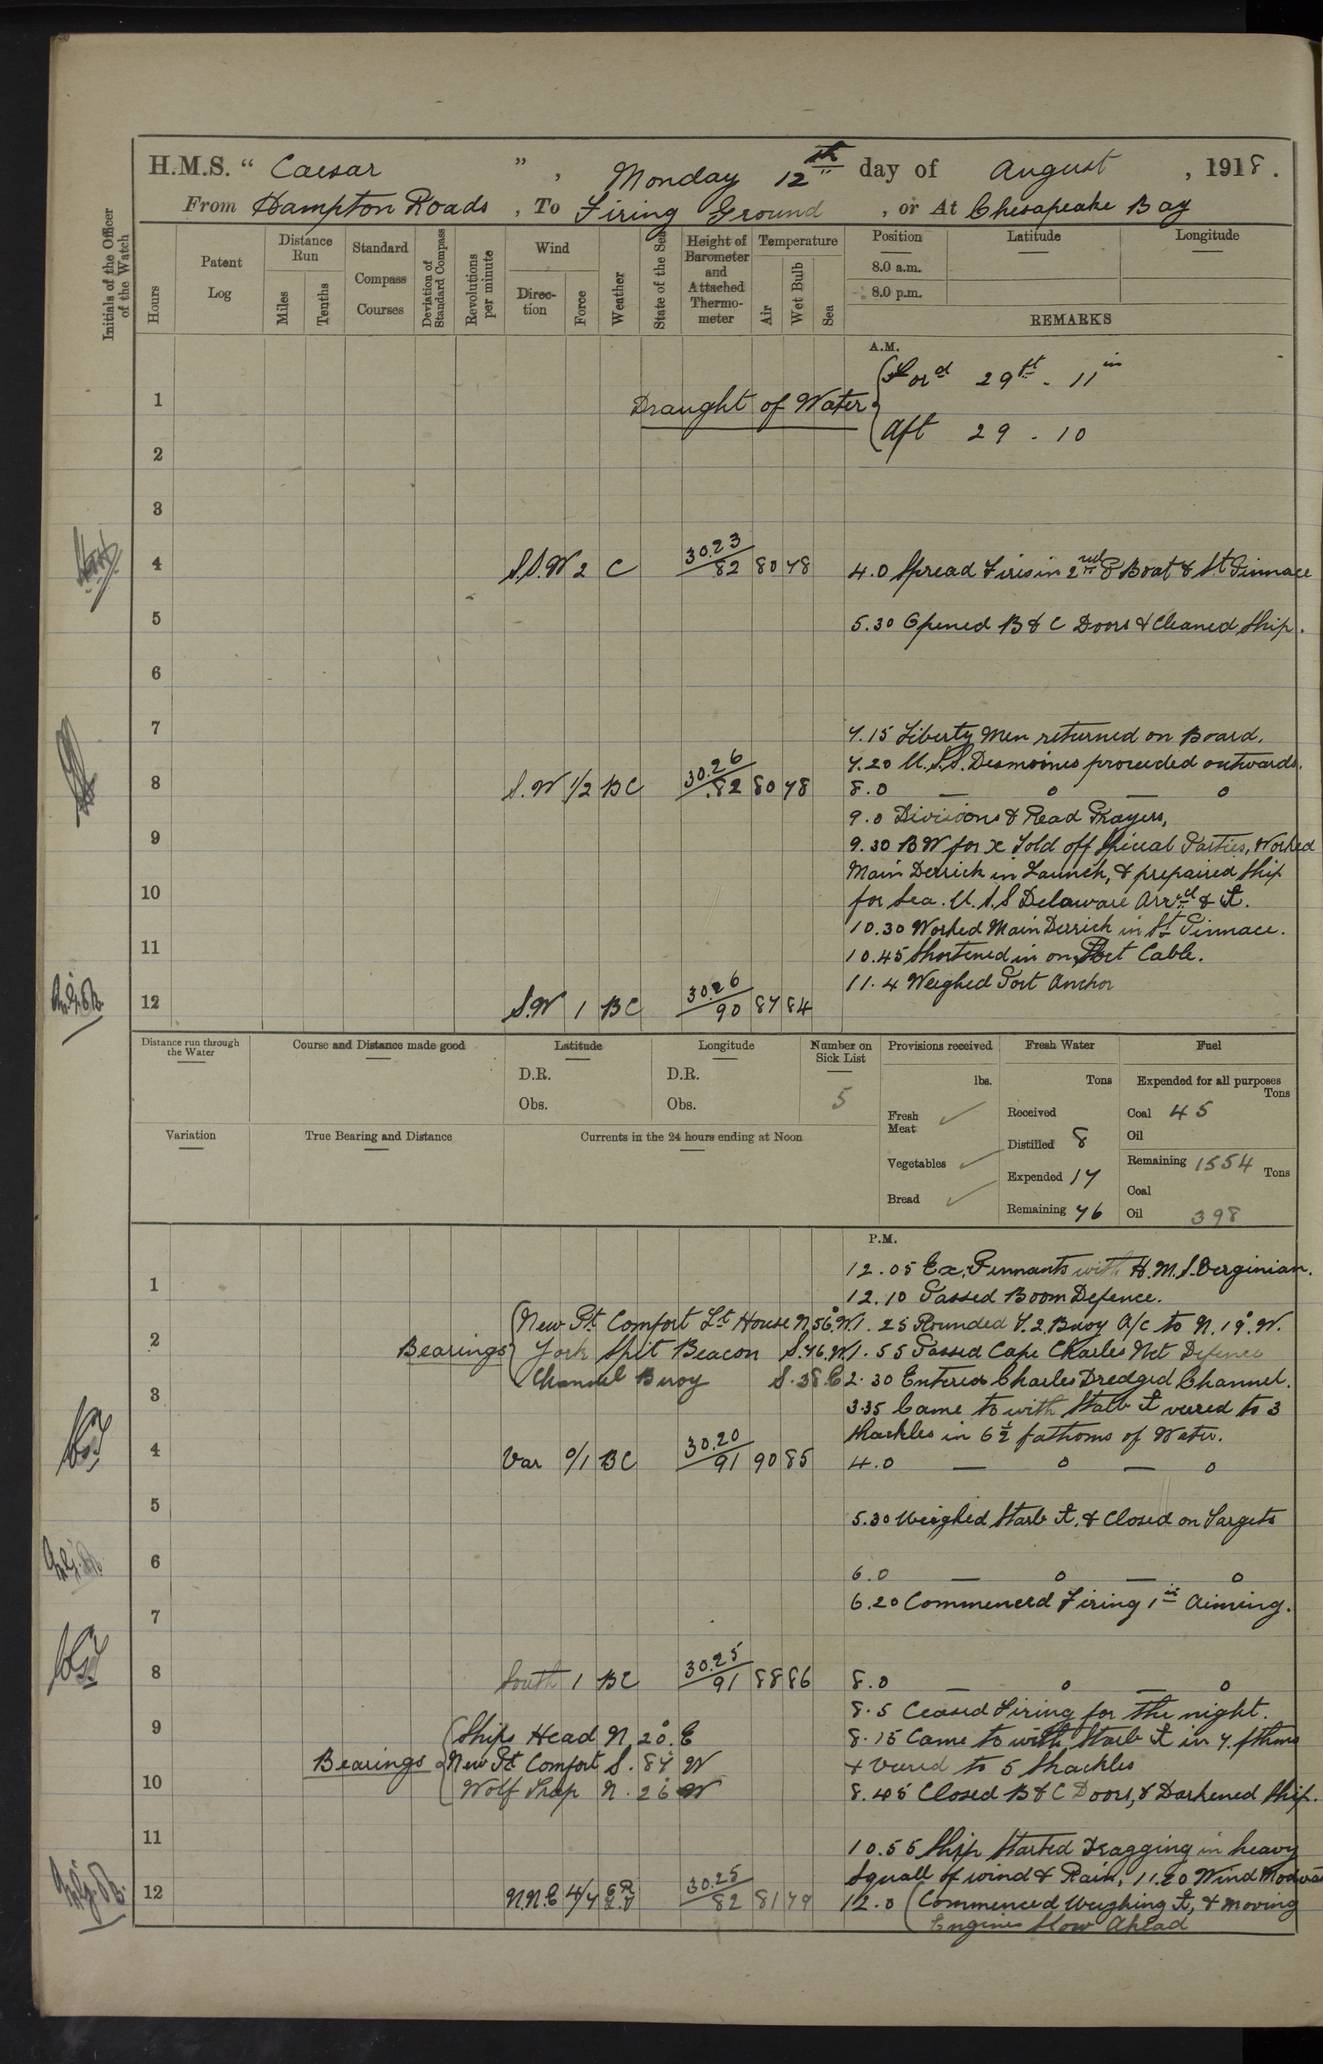 H.M.S. " Caesar ", Monday 12th day of August, 1918.
From Hampton Roads, To Firing Ground, or At Chesapeake Bay
Initials of the Officer of the Watch
Hours
Patent Log
Distance Run
Miles
Tenths
Standard Compass Courses
Deviation of Standard Compass
Revolutions per minute
Wind
Direction
Force
Weather
State of the Sea
Height of Barometer and Attached Thermometer
Temperature
Air
Wet Bulb
Sea
Position Latitude Longitude
8.0 a.m.
8.0 p.m.
REMARKS
A.M.
Draught of Water { Ford 29ft - 11in
Aft 29 - 10
1
2
3
4 S.S.W 2 C 30.23/82 80 78 4.0 Spread Fires in 2nd P Boat & St. Pinnace
5 5.30 Opened B & C Doors & Cleaned Ship.
6
7 7.15 Liberty Men returned on Board.
7.20 U.S.S. Desmoines proceeded outwards.
8 S.W 1/2 BC 30.26/82 80 78 8.0 — o — o
9.0 Divisions & Read Prayers,
9 9.30 BW for x Told off Special Parties, Worked
Main Derrick in Launch, & prepaired Ship
10 for Sea. U.S.S Delaware Arrd & ⚓.
10.30 Worked Main Derrick in St Pinnace.
11 10.45 Shortened in on Port Cable.
11.4 Weighed Port Anchor
12 S.W 1 BC 30.26/90 87 84
Distance run through the Water
Course and Distance made good
Latitude
D.R.
Obs.
Longitude
D.R.
Obs.
Number on Sick List
5
Provisions received
lbs.
Fresh Meat ✓
Vegetables ✓
Bread ✓
Fresh Water
Tons
Received
Distilled 8
Expended 17
Remaining 76
Fuel
Expended for all purposes
Tons
Coal 45
Oil
Remaining 1554 Tons
Coal
Oil 398
Variation
True Bearing and Distance
Currents in the 24 hours ending at Noon
P.M.
12.05 Ex. Pennants with H.M.S. Verginian.
1 12.10 Passed Boom Defence.
Bearings { New Pt Comfort Lt House N.56°W 1.25 Rounded T.2 Buoy A/c to N.19°W.
2 York Spit Beacon S.76.W 1.55 Passed Cape Charles Net Defence
Channel Buoy S.38 E 2.30 Entered Charles Dredged Channel.
3 3.35 Came to with Starb ⚓ veered to 3
Shackles in 6½ fathoms of Water.
4 Var 0/1 BC 30.20/91 90 85 4.0 — o — o
5 5.30 Weighed Starb ⚓, & Closed on Targets
6 6.0 — o — o
6.20 Commenced Firing 1in Aiming.
7
8 South 1 BC 30.25/91 88 86 8.0 — o — o
8.5 Ceased Firing for the night.
9 Bearings { Ships Head N.20°.E 8.15 Came to with Starb ⚓ in 7 fthms
New Pt Comfort S.87 W & Veered to 5 Shackles
10 Wolf Trap N.26 W 8.45 Closed B & C Doors, & Darkened Ship.
11 10.55 Ship Started Dragging in heavy
Squall of wind & Rain, 11.20 Wind
12 N.N.E 4/7 30.25/82 81 79 12.0 ( Commenced Weighing ⚓, & moving
Engines Slow Ahead